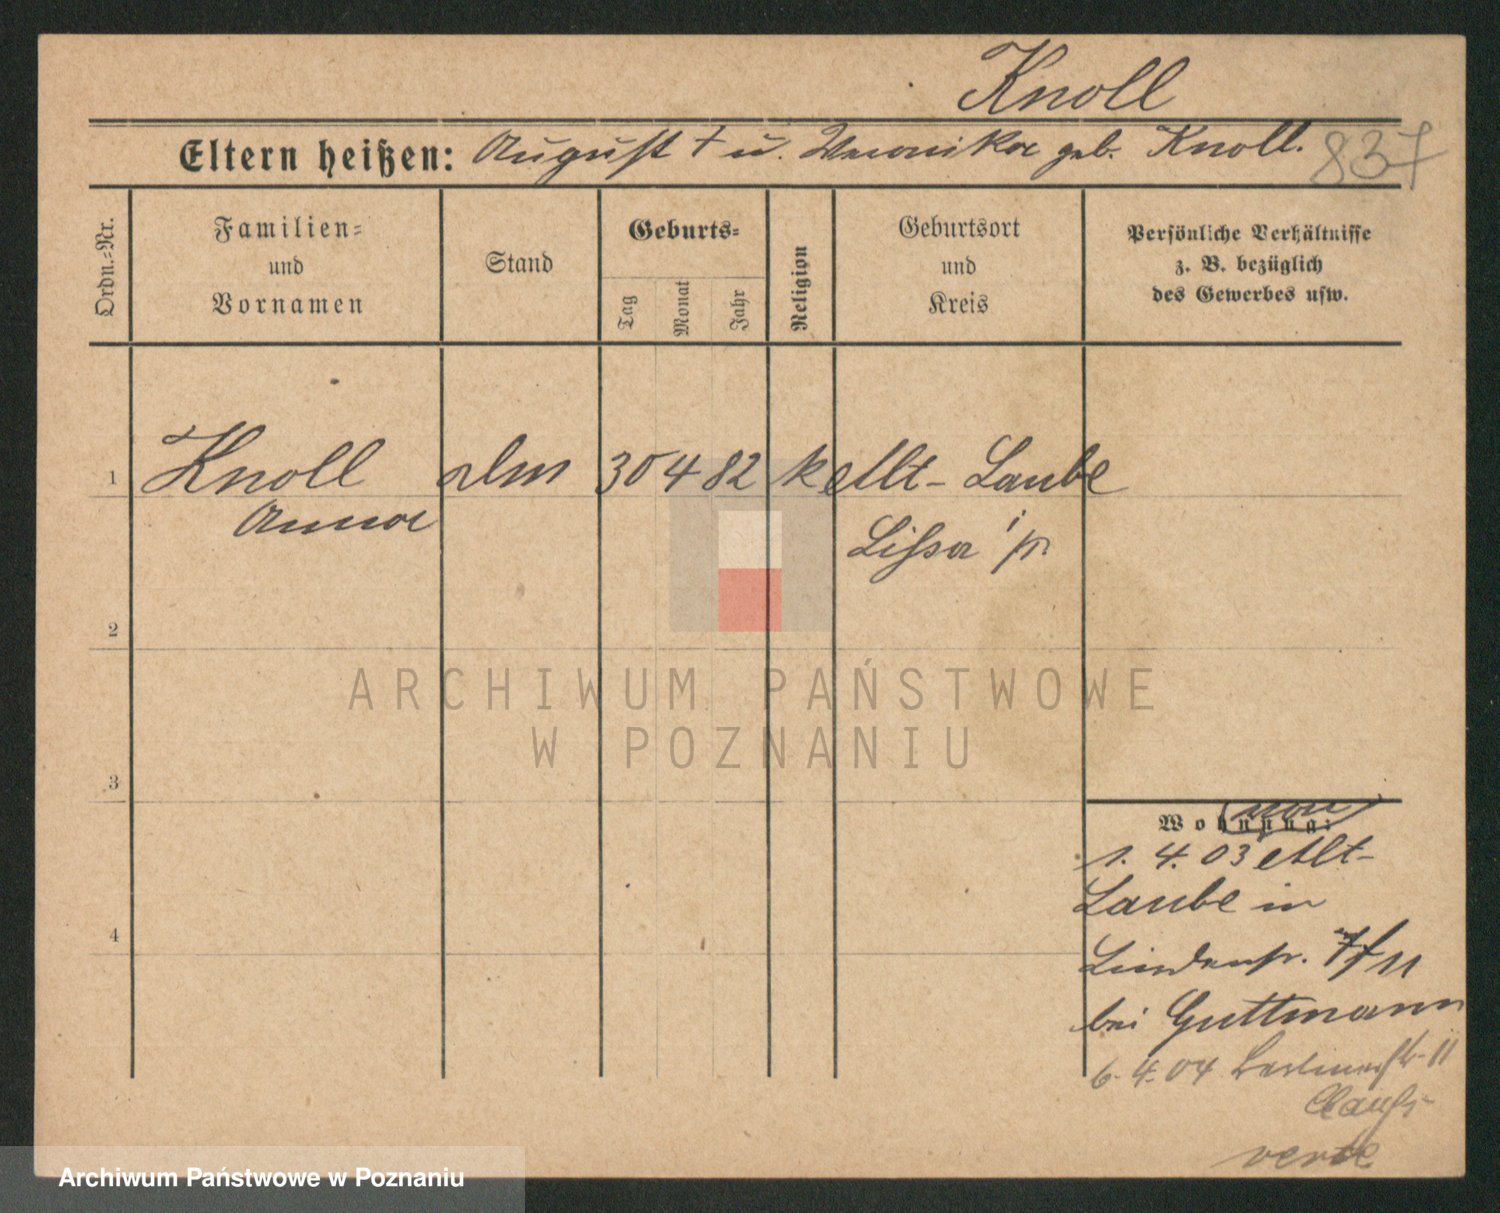 Knoll
Eltern heißen: August † u. Veronika geb. Knoll.
837
Ordn.=Nr.
Familien=
und
Vornamen
Stand
Geburts=
Tag
Monat
Jahr
Religion
Geburtsort
und
Kreis
Persönliche Verhältnisse
z. B. bezüglich
des Gewerbes usw.
1 Knoll 30 4 82 k Alt-Laube
Anna Lissa i/p.
2
3
4
Wohnung:
von
1. 4. 03 Alt-
Laube in
Lindenstr. 11
bei Guttmann
6. 4. 04 Berlinerstr. 11
verte
ARCHIWUM PAŃSTWOWE
W POZNANIU
Archiwum Państwowe w Poznaniu